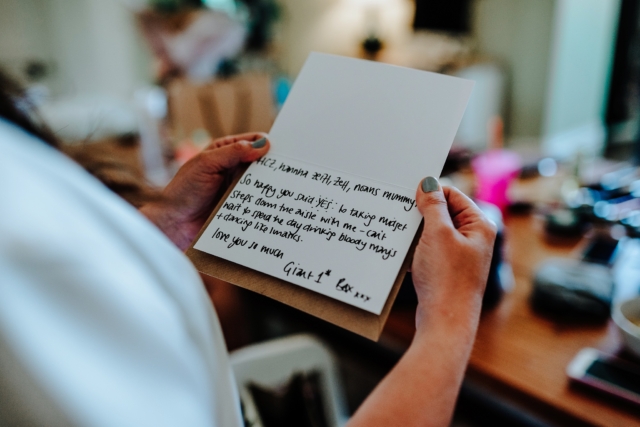 Hannah Zezti Zell, noahs mummy,
So happy you said yes! to taking midget
steps down the aisle with me - can't
wait to spend the day drinking bloody mary's
+ dancing like lunatics.
love you so much
Giant 1st Bex xxx